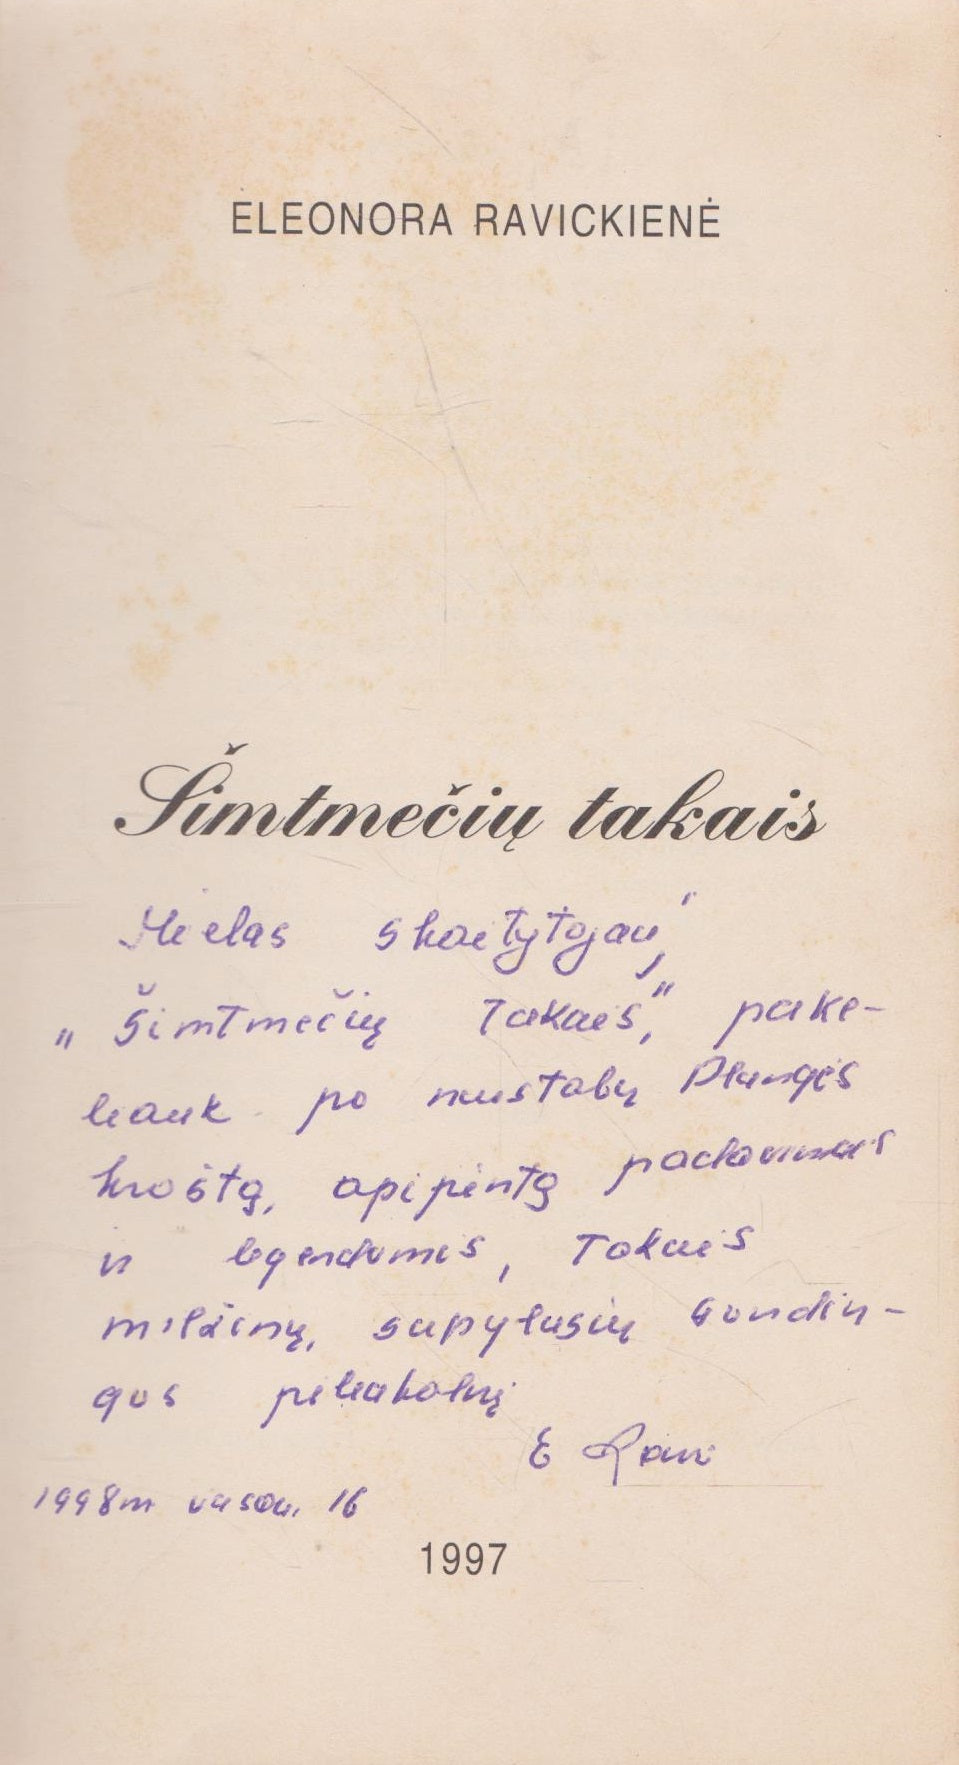 ELEONORA RAVICKIENĖ
Šimtmečių takais
Mielas skaitytojau,
„Šimtmečių takais", pake-
liauk po nuostabų Plungės
kraštą, apipintą padavimais
ir legendomis, takais
milžinų, supylusių
gus piliakalnį
E Rav
1998m vasar. 16
1997